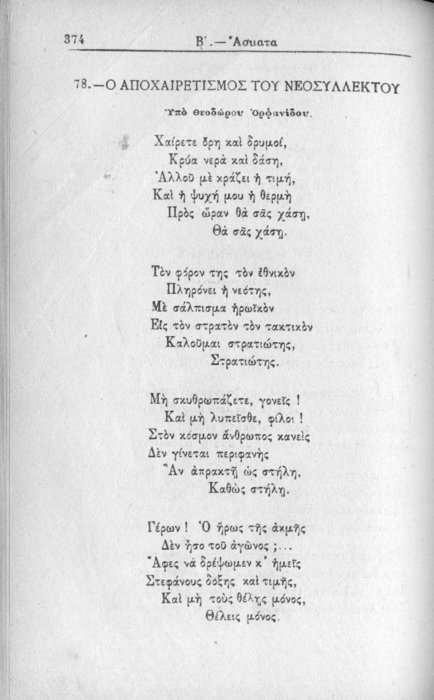 374
Β΄.—Ἄσματα
78.—Ο ΑΠΟΧΑΙΡΕΤΙΣΜΟΣ ΤΟΥ ΝΕΟΣΥΛΛΕΚΤΟΥ
Ὑπὸ Θεοδώρου Ὀρφανίδου.
Χαίρετε ὄρη καὶ δρυμοί,
Κρύα νερὰ καὶ δάση,
Ἀλλοῦ μὲ κράζει ἡ τιμή,
Καὶ ἡ ψυχή μου ἡ θερμὴ
Πρὸς ὥραν θὰ σᾶς χάσῃ,
Θὰ σᾶς χάσῃ.
Τὸν φόρον της τὸν ἐθνικὸν
Πληρόνει ἡ νεότης,
Μὲ σάλπισμα ἡρωϊκὸν
Εἰς τὸν στρατὸν τὸν τακτικὸν
Καλοῦμαι στρατιώτης,
Στρατιώτης.
Μὴ σκυθρωπάζετε, γονεῖς !
Καὶ μὴ λυπεῖσθε, φίλοι !
Στὸν κόσμον ἄνθρωπος κανεὶς
Δὲν γίνεται περιφανὴς
Ἂν ἀπρακτῇ ὡς στήλη,
Καθὼς στήλη.
Γέρων ! Ὁ ἥρως τῆς ἀκμῆς
Δὲν ἦσο τοῦ ἀγῶνος ;...
Ἄφες νὰ δρέψωμεν κ' ἡμεῖς
Στεφάνους δόξης καὶ τιμῆς,
Καὶ μὴ τοὺς θέλῃς μόνος,
Θέλεις μόνος.